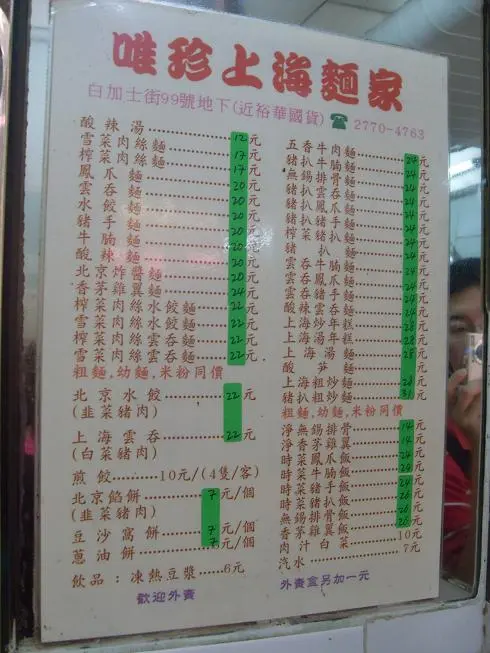 唯珍上海麵家
白加士街99號地下(近裕華國貨) ☎ 2770-4763
酸辣湯 12元
雪菜肉絲麵 17元
榨菜肉絲麵 17元
鳳爪麵 20元
雲吞麵 20元
水餃麵 20元
豬手麵 20元
牛腩麵 20元
酸辣麵 20元
北京炸醬麵 20元
香茅雞翼麵 24元
榨菜肉絲水餃麵 22元
雪菜肉絲水餃麵 22元
榨菜肉絲雲吞麵 22元
雪菜肉絲雲吞麵 22元
粗麵,幼麵,米粉同價
北京水餃 22元
(韭菜豬肉)
上海雲吞 22元
(白菜豬肉)
煎餃 10元/(4隻/客)
北京餡餅 7元/個
(韭菜豬肉)
豆沙窩餅 7元/個
蔥油餅 7元/個
飲品:凍熱豆漿 6元
歡迎外賣
五香牛肉麵 24元
豬扒牛腩麵 24元
無錫排骨麵 24元
豬扒雲吞麵 24元
豬扒鳳爪麵 24元
豬扒豬手麵 24元
榨菜豬扒麵 24元
豬扒麵 24元
雲吞牛腩麵 24元
雲吞鳳爪麵 24元
雲吞豬手麵 24元
酸辣雲吞麵 24元
上海炒年糕 28元
上海湯年糕 28元
上海湯麵 28元
酸筍麵 元
上海粗炒麵 28元
豬扒粗炒麵 31元
粗麵幼麵,米粉同價
淨無錫排骨 14元
淨香茅雞翼 14元
時菜鳳爪飯 24元
時菜牛腩飯 24元
時菜豬手飯 24元
時菜豬扒飯 26元
無錫排骨飯 26元
香茅雞翼飯 28元
肉汁白菜 10元
汽水 7元
外賣盒另加一元